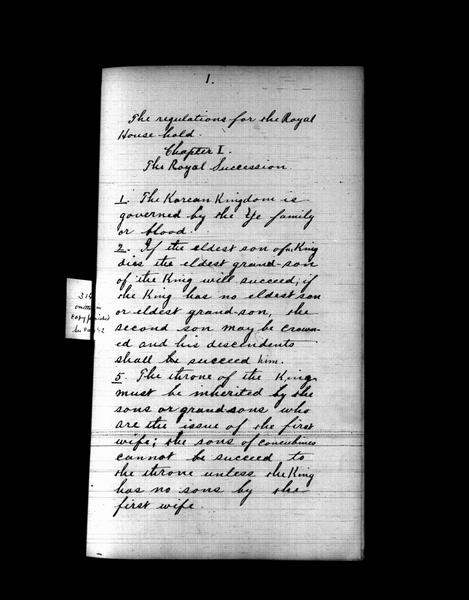 1.
The regulations for the Royal
House hold.
Chapter I.
The Royal Succession.
1. The Korean Kingdom is
governed by the Ye family
or blood.
2. If the eldest son of a King
dies the eldest grand-son
of the King will succeed; if
the King has no eldest son
or eldest grand-son, the
second son may be crown-
ed and his descendents
shall be succeed him.
5. The throne of the King
must be inherited by the
sons or grand-sons who
are the issue of the first
wife; the sons of concubines
cannot be succeed to
the throne unless the King
has no sons by the
first wife.
omitted in
copy furnished